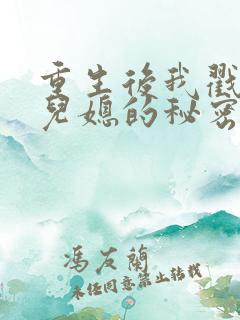 重生後我戳
兒媳的秘密
馮友蘭
未經同意禁止轉載